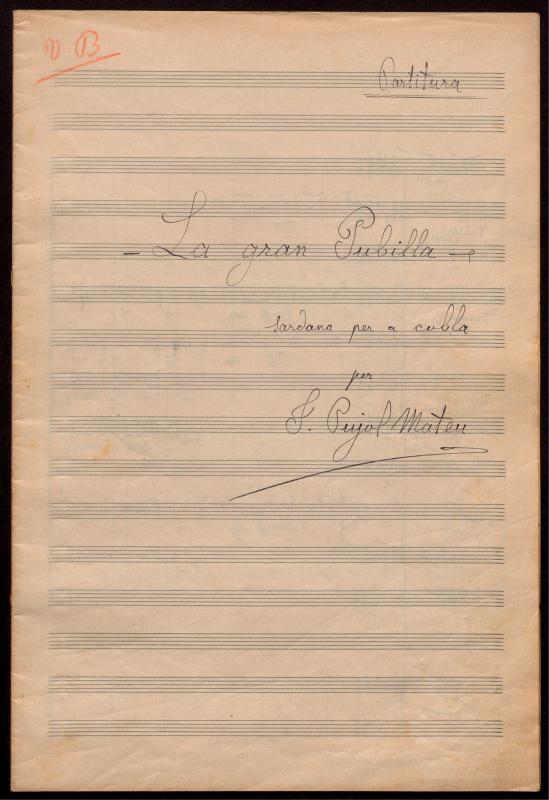 V B
Partitura
- La gran Pubilla -
sardana per a cobla
per
F. Pujol Mateu